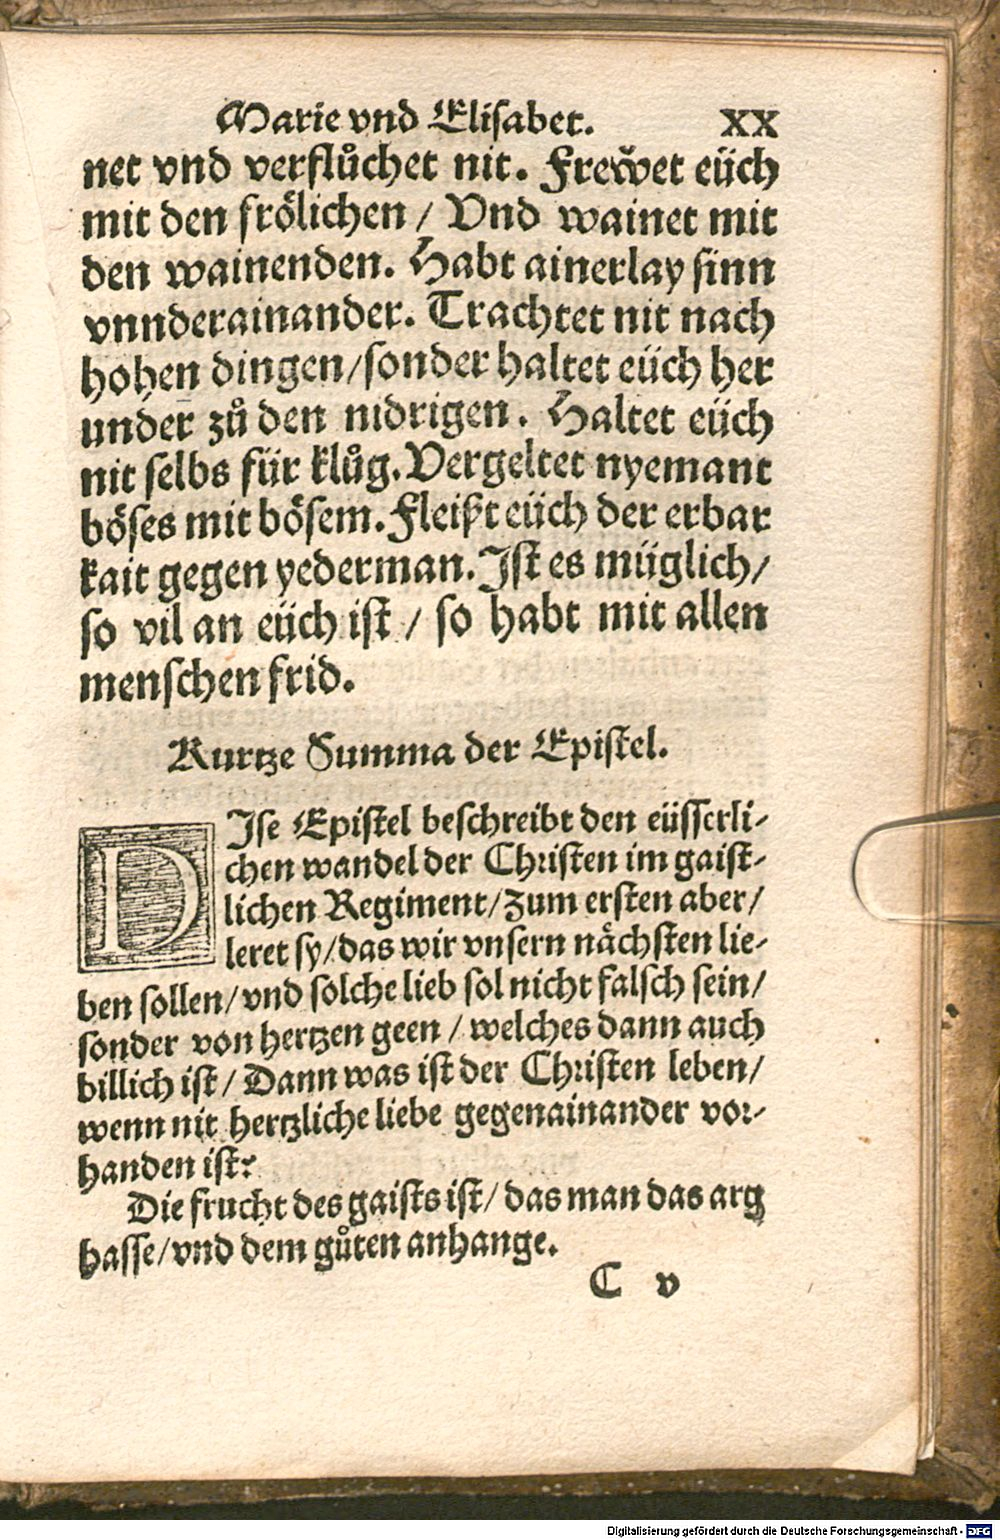 Marie vnd Elisabet. XX
net vnd verflůchet nit. Frewͤet eüch
mit den frölichen / Vnd wainet mit
den wainenden. Habt ainerlay sinn
vnnderainander. Trachtet nit nach
hohen dingen/sonder haltet eüch her
under zů den nidrigen. Haltet eüch
nit selbs für klůg. Vergeltet nyemant
böses mit bösem. Fleißt eüch der erbar
kait gegen yederman. Ist es müglich/
so vil an eüch ist / so habt mit allen
menschen frid.
Kurtze Summa der Epistel.
DIse Epistel beschreibt den eüsserli-
chen wandel der Christen im gaist-
lichen Regiment/zum ersten aber/
leret sy/das wir vnsern nächsten lie-
ben sollen/vnd solche lieb sol nicht falsch sein/
sonder von hertzen geen / welches dann auch
billich ist / Dann was ist der Christen leben/
wenn nit hertzliche liebe gegenainander vor-
handen ist?
Die frucht des gaists ist/ das man das arg
hasse/vnd dem gůten anhange.
C v
Digitalisierung gefördert durch die Deutsche Forschungsgemeinschaft - DFG